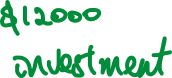 $12000
investment